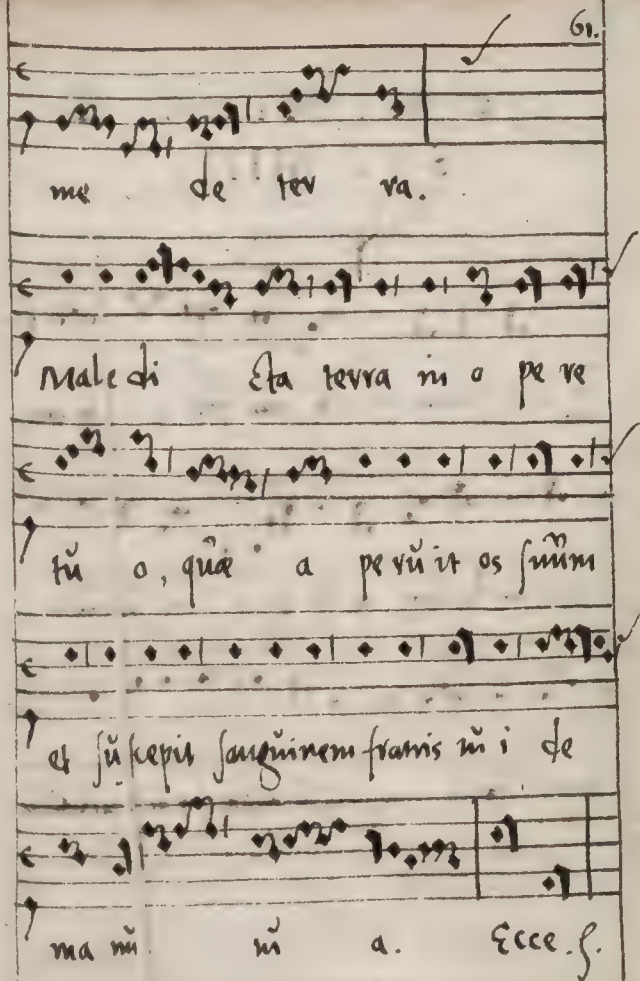 61.
me de ter ra.
Maledi cta terra in o pe re
tŭ o, quæ a perŭit os sŭŭm
et sŭscepit sangŭinem fratris tŭ i de
ma nŭ tŭ a. Ecce. s.